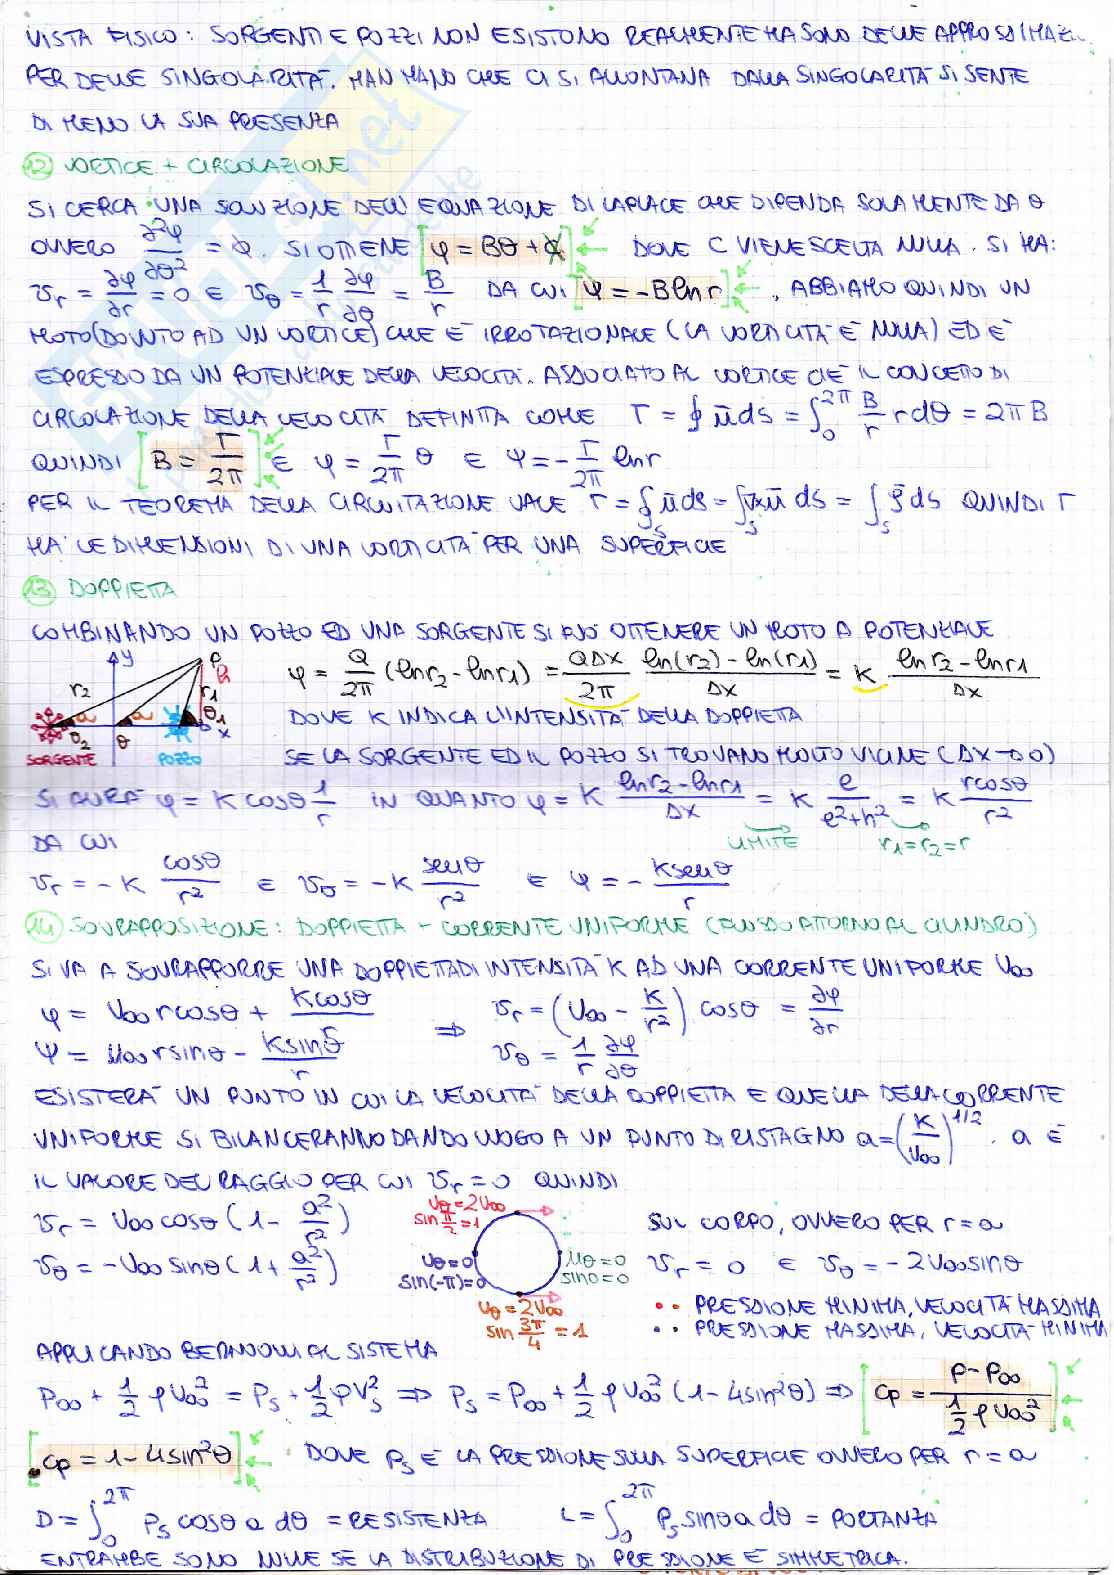 VISTA FISICO: SORGENTI E POZZI NON ESISTONO REALMENTE MA SONO DELLE APPROSSIMAZI
PER DELLE SINGOLARITÀ. MAN MANO CHE CI SI ALLONTANA DALLA SINGOLARITÀ SI SENTE
DI MENO LA SUA PRESENZA
12 VORTICE + CIRCOLAZIONE
SI CERCA UNA SOLUZIONE DELL'EQUAZIONE DI LAPLACE CHE DIPENDA SOLAMENTE DA θ
OVVERO ∂²φ/∂θ² = 0. SI OTTIENE [φ = Bθ + C] DOVE C VIENE SCELTA NULLA. SI HA:
v_r = ∂φ/∂r = 0 E v_θ = 1/r ∂φ/∂θ = B/r DA CUI [ψ = -B ln r], ABBIAMO QUINDI UN
MOTO (DOVUTO AD UN VORTICE) CHE È IRROTAZIONALE (LA VORTICITÀ È NULLA) ED È
ESPRESSO DA UN POTENZIALE DELLA VELOCITÀ. ASSOCIATO AL VORTICE C'È IL CONCETTO DI
CIRCOLAZIONE DELLA VELOCITÀ DEFINITA COME Γ = ∮ ū ds = ∫₀^2π B/r r dθ = 2πB
QUINDI [B = Γ/2π] E φ = Γ/2π θ E ψ = - Γ/2π ln r
PER IL TEOREMA DELLA CIRCUITAZIONE VALE Γ = ∮_S ū ds = ∫_S ∇×ū ds = ∫_S ζ̄ ds QUINDI Γ
HA LE DIMENSIONI DI UNA VORTICITÀ PER UNA SUPERFICIE
13 DOPPIETTA
COMBINANDO UN POZZO ED UNA SORGENTE SI PUÒ OTTENERE UN MOTO A POTENZIALE
y P r2 R r1 α α θ1 x θ2 θ
SORGENTE POZZO
φ = Q/2π (ln r2 - ln r1) = QΔx/2π ln(r2) - ln(r1)/Δx = K ln r2 - ln r1/Δx
DOVE K INDICA L'INTENSITÀ DELLA DOPPIETTA
SE LA SORGENTE ED IL POZZO SI TROVANO MOLTO VICINE (Δx → 0)
SI AVRÀ φ = K cosθ 1/r IN QUANTO φ = K ln r2 - ln r1/Δx = K e/e²+h² = K r cosθ/r²
LIMITE r1=r2=r
DA CUI
v_r = - K cosθ/r² E v_θ = - K senθ/r² E ψ = - K senθ/r
14 SOVRAPPOSIZIONE: DOPPIETTA - CORRENTE UNIFORME (FLUSSO ATTORNO AL CILINDRO)
SI VA A SOVRAPPORRE UNA DOPPIETTA DI INTENSITÀ K AD UNA CORRENTE UNIFORME U∞
φ = U∞ r cosθ + K cosθ/r ⇒ v_r = (U∞ - K/r²) cosθ = ∂φ/∂r
ψ = U∞ r sinθ - K sinθ/r v_θ = 1/r ∂φ/∂θ
ESISTERÀ UN PUNTO IN CUI LA VELOCITÀ DELLA DOPPIETTA E QUELLA DELLA CORRENTE
UNIFORME SI BILANCERANNO DANDO LUOGO A UN PUNTO DI RISTAGNO a = (K/U∞)^1/2. a È
IL VALORE DEL RAGGIO PER CUI v_r = 0 QUINDI
v_r = U∞ cosθ (1 - a²/r²)
v_θ = - U∞ sinθ (1 + a²/r²)
uθ = 2U∞
sin π/2 = 1
uθ = 0
sin(-π) = 0
uθ = 0
sin0 = 0
uθ = 2U∞
sin 3π/4 = 1
SUL CORPO, OVVERO PER r = a
v_r = 0 E v_θ = - 2U∞ sinθ
•• PRESSIONE MINIMA, VELOCITÀ MASSIMA
•• PRESSIONE MASSIMA, VELOCITÀ MINIMA
APPLICANDO BERNOULLI AL SISTEMA
P∞ + 1/2 ρU∞² = Ps + 1/2 ρVs² ⇒ Ps = P∞ + 1/2 ρU∞² (1 - 4sin²θ) ⇒ [Cp = P - P∞ / 1/2 ρU∞²]
[Cp = 1 - 4sin²θ] DOVE Ps È LA PRESSIONE SULLA SUPERFICIE OVVERO PER r = a
D = ∫₀^2π Ps cosθ a dθ = RESISTENZA L = ∫₀^2π Ps sinθ a dθ = PORTANZA
ENTRAMBE SONO NULLE SE LA DISTRIBUZIONE DI PRESSIONE È SIMMETRICA.